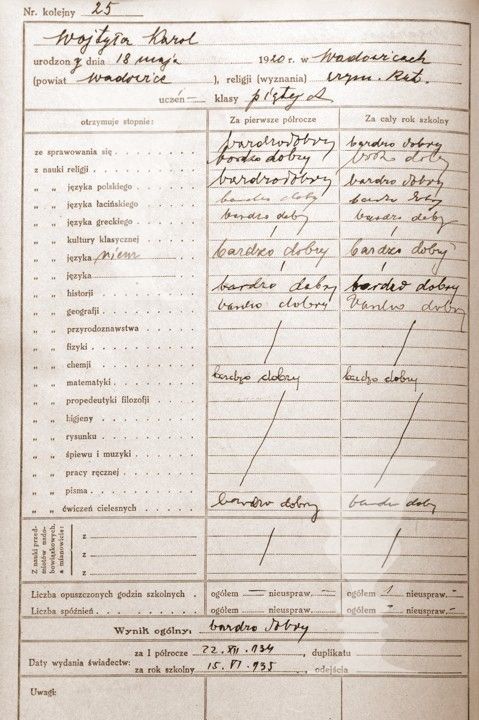 Nr. kolejny 25
Wojtyła Karol
urodzony dnia 18 maja 1920 r. w Wadowicach
(powiat Wadowice ), religii (wyznania) rzym. kat.
uczeń — klasy piątej A
otrzymuje stopnie: Za pierwsze półrocze Za cały rok szkolny
ze sprawowania się bardzo dobry bardzo dobry
z nauki religii bardzo dobry bardzo dobry
„ „ języka polskiego bardzo dobry bardzo dobry
„ „ języka łacińskiego bardzo dobry bardzo dobry
„ „ języka greckiego bardzo dobry bardzo dobry
„ „ kultury klasycznej / /
„ „ języka niem bardzo dobry bardzo dobry
„ „ języka / /
„ „ historji bardzo dobry bardzo dobry
„ „ geografji bardzo dobry bardzo dobry
„ „ przyrodoznawstwa
„ „ fizyki
„ „ chemji
„ „ matematyki bardzo dobry bardzo dobry
„ „ propedeutyki filozofji
„ „ higjeny
„ „ rysunku
„ „ śpiewu i muzyki
„ „ pracy ręcznej
„ „ pisma
„ „ ćwiczeń cielesnych bardzo dobry bardzo dobry
Z nauki przedmiotów nadobowiązkowych, a mianowicie:
z
z
z
Liczba opuszczonych godzin szkolnych ogółem — nieuspraw. — ogółem 1 nieuspraw. -
Liczba spóźnień ogółem — nieuspraw. — ogółem - nieuspraw. -
Wynik ogólny: bardzo dobry
Daty wydania świadectw: za I półrocze 22. XII. 934 , duplikatu
za rok szkolny 15. VI. 935 , odejścia
Uwagi: